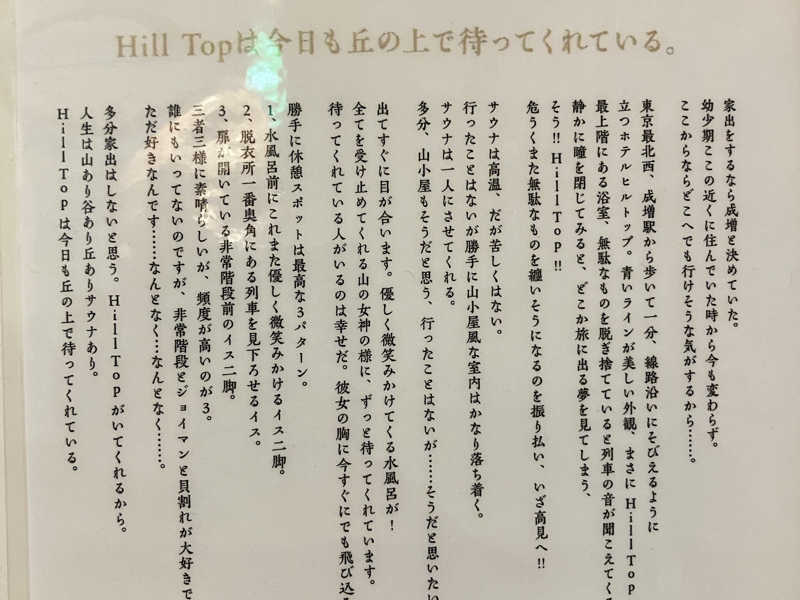 Hill Topは今日も丘の上で待ってくれている。
家出をするなら成増と決めていた。
幼少期ここの近くに住んでいた時から今も変わらず。
ここからならどこへでも行けそうな気がするから……。
東京最北西、成増駅から歩いて一分、線路沿いにそびえるように
立つホテルヒルトップ。青いラインが美しい外観、まさにHillTop
最上階にある浴室、無駄なものを脱ぎ捨てていると列車の音が聞こえてくる
静かに瞳を閉じてみると、どこか旅に出る夢を見てしまう、
そう!!HillTop!!
危うくまた無駄なものを纏いそうになるのを振り払い、いざ高見へ!!
サウナは高温、だが苦しくはない。
行ったことはないが勝手に山小屋風な室内はかなり落ち着く。
サウナは一人にさせてくれる。
多分、山小屋もそうだと思う、行ったことはないが……そうだと思いたい
出てすぐに目が合います。優しく微笑みかけてくる水風呂が!
全てを受け止めてくれる山の女神の様に、ずっと待ってくれています。
待ってくれている人がいるのは幸せだ。彼女の胸に今すぐにでも飛び込
勝手に休憩スポットは最高な3パターン。
1、水風呂前にこれまた優しく微笑みかけるイス二脚。
2、脱衣所一番奥角にある列車を見下ろせるイス。
3、扉が開いている非常階段前のイス二脚。
三者三様に素晴らしいが、頻度が高いのが3。
誰にもいってないのですが、非常階段とジョイマンと貝割れが大好きで
ただ好きなんです……なんとなく…なんとなく……。
多分家出はしないと思う。HillTopがいてくれるから。
人生は山あり谷あり丘ありサウナあり。
HillTopは今日も丘の上で待ってくれている。